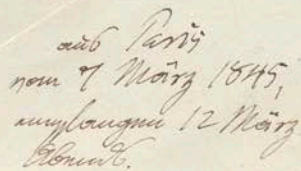 aus Paris
vom 7 März 1845,
empfangen 12 März
Abends.